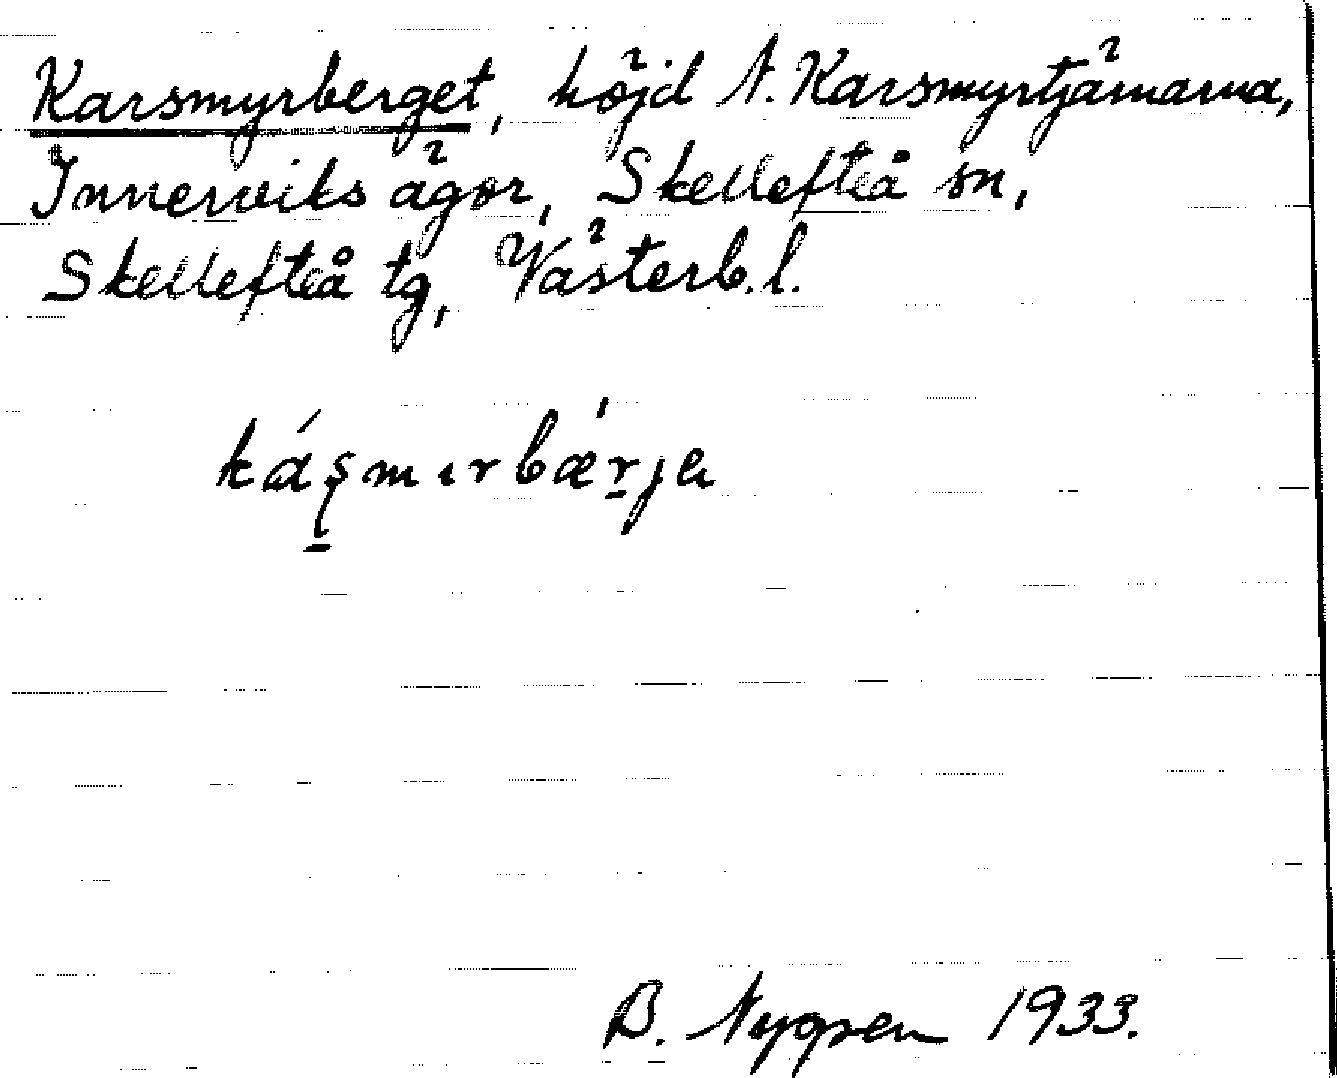 Karsmyrberget, höjd N. Karsmyrtjärnarna,
Innerviks ägor, Skellefteå sn,
Skellefteå tg, Västerb. l.
káʂmırbǽrja
B. Nygren 1933.